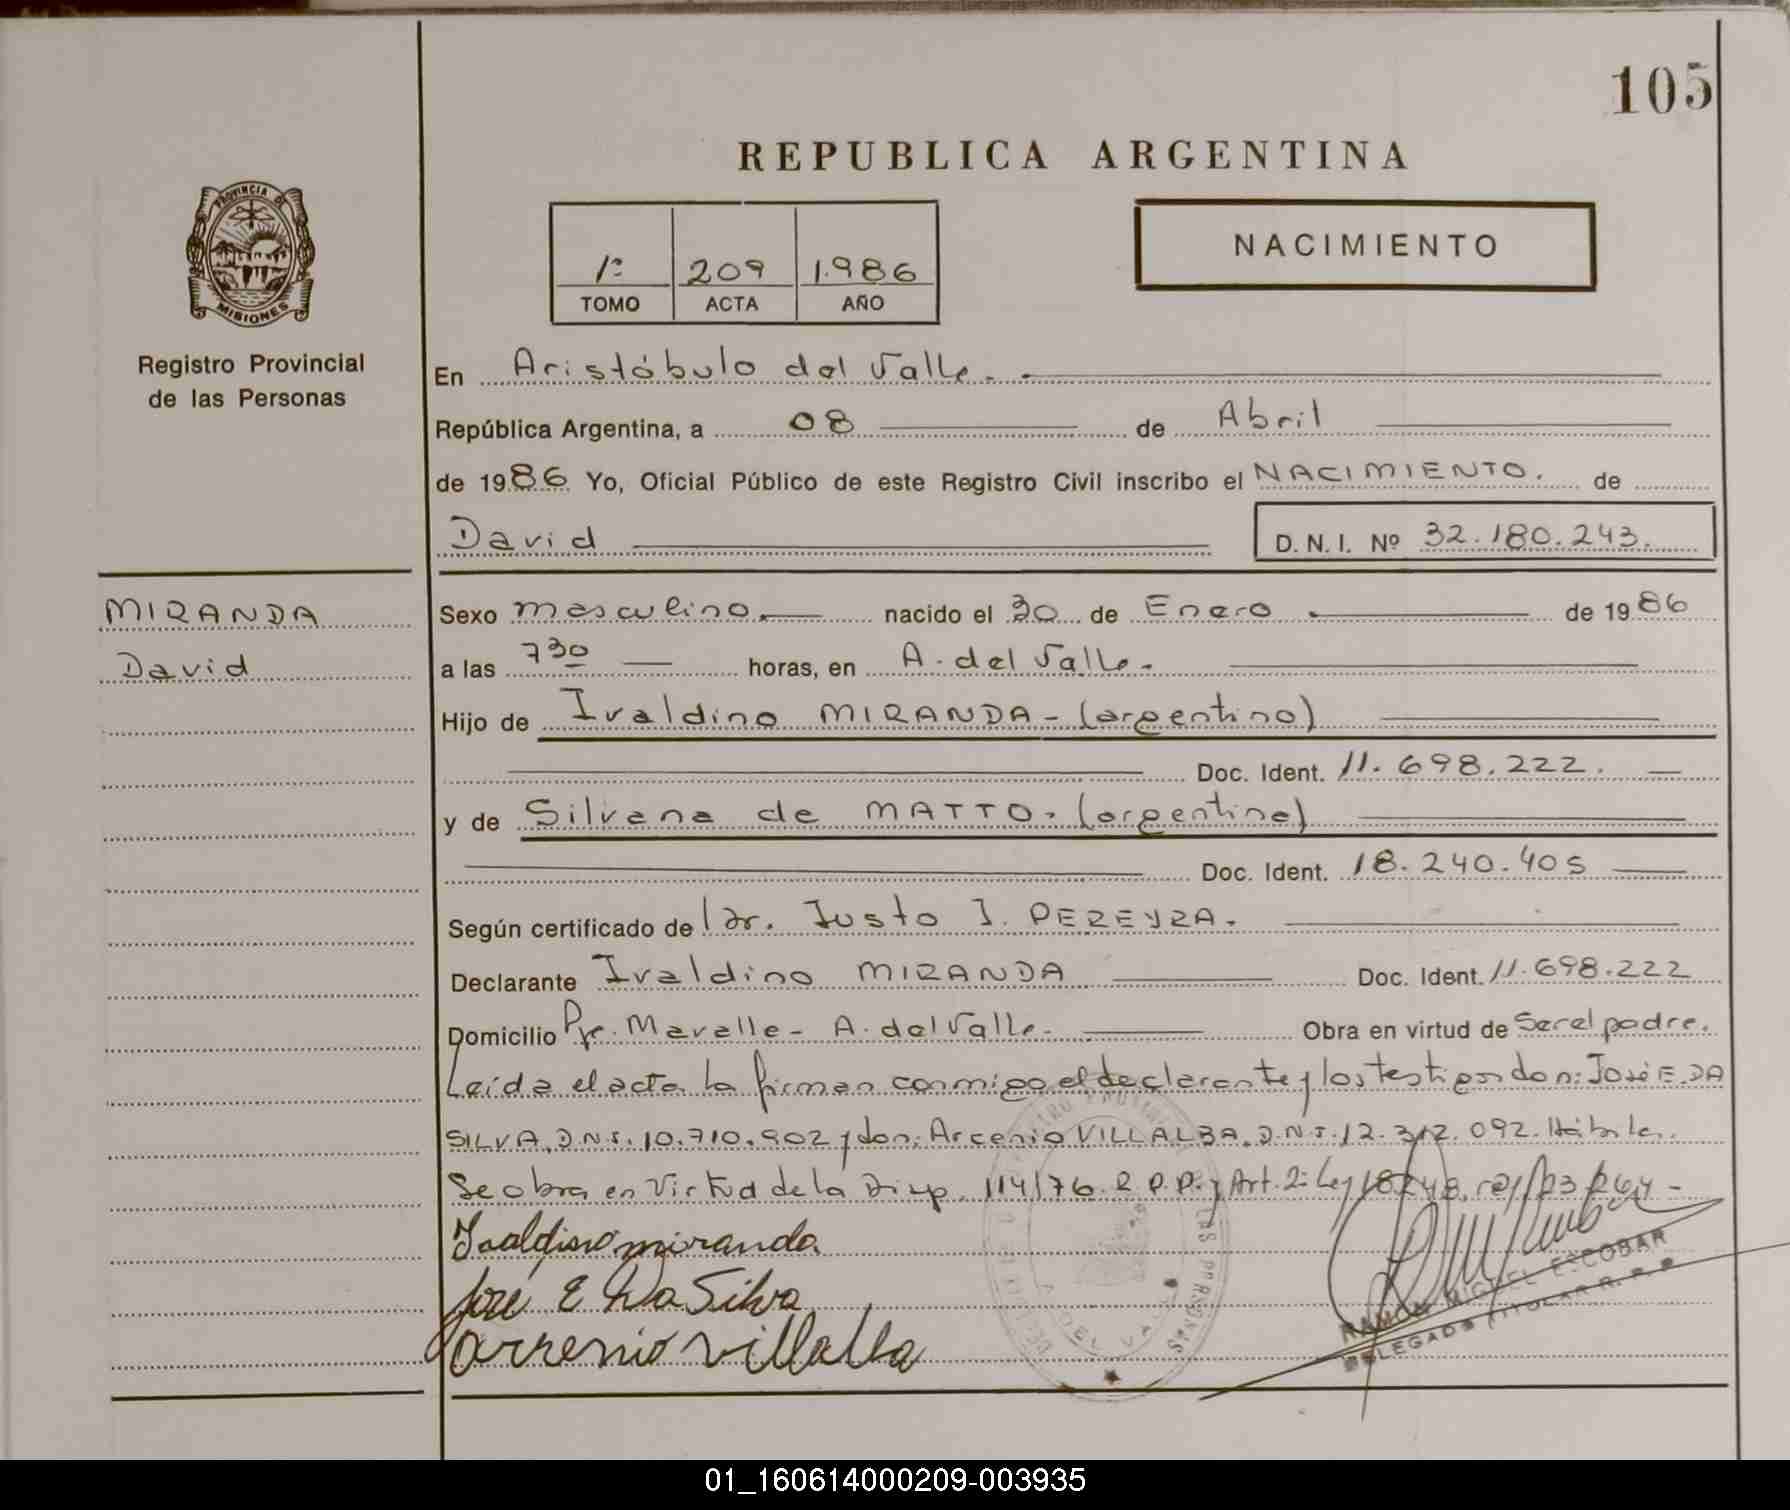 105
REPUBLICA ARGENTINA
PROVINCIA DE
MISIONES
Registro Provincial
de las Personas
1º 209 1.986
TOMO ACTA AÑO
NACIMIENTO
En Aristóbulo del Valle.
República Argentina, a 08 de Abril
de 1986 Yo, Oficial Público de este Registro Civil inscribo el NACIMIENTO. de
David D. N. I. Nº 32.180.243.
MIRANDA
David
Sexo masculino nacido el 30 de Enero de 1986
a las 730 horas, en A. del Valle.
Hijo de Ivaldino MIRANDA - (argentino)
Doc. Ident. 11.698.222.
y de Silvana de MATTO. (argentina)
Doc. Ident. 18.240.405
Según certificado de Dr. Justo J. PEREYRA.
Declarante Ivaldino MIRANDA Doc. Ident. 11.698.222
Domicilio Pje. Mavalle - A. del Valle. Obra en virtud de Ser el padre.
Leída el acta la firman conmigo el declarante y los testigos don: José E. DA
SILVA, D.N.I. 10.710.902 y don: Arcenio VILLALBA. D.N.I. 12.312.092. Hábiles.
Se obra en Virtud de la Disp. 114/76. R.P.P. y Art. 2º Ley 18248
Ivaldino miranda.
José E Da Silva
arsenio villalba
A. DEL VALLE
RAMON MIGUEL ESCOBAR
DELEGADO TITULAR R. P. P.
01_160614000209-003935